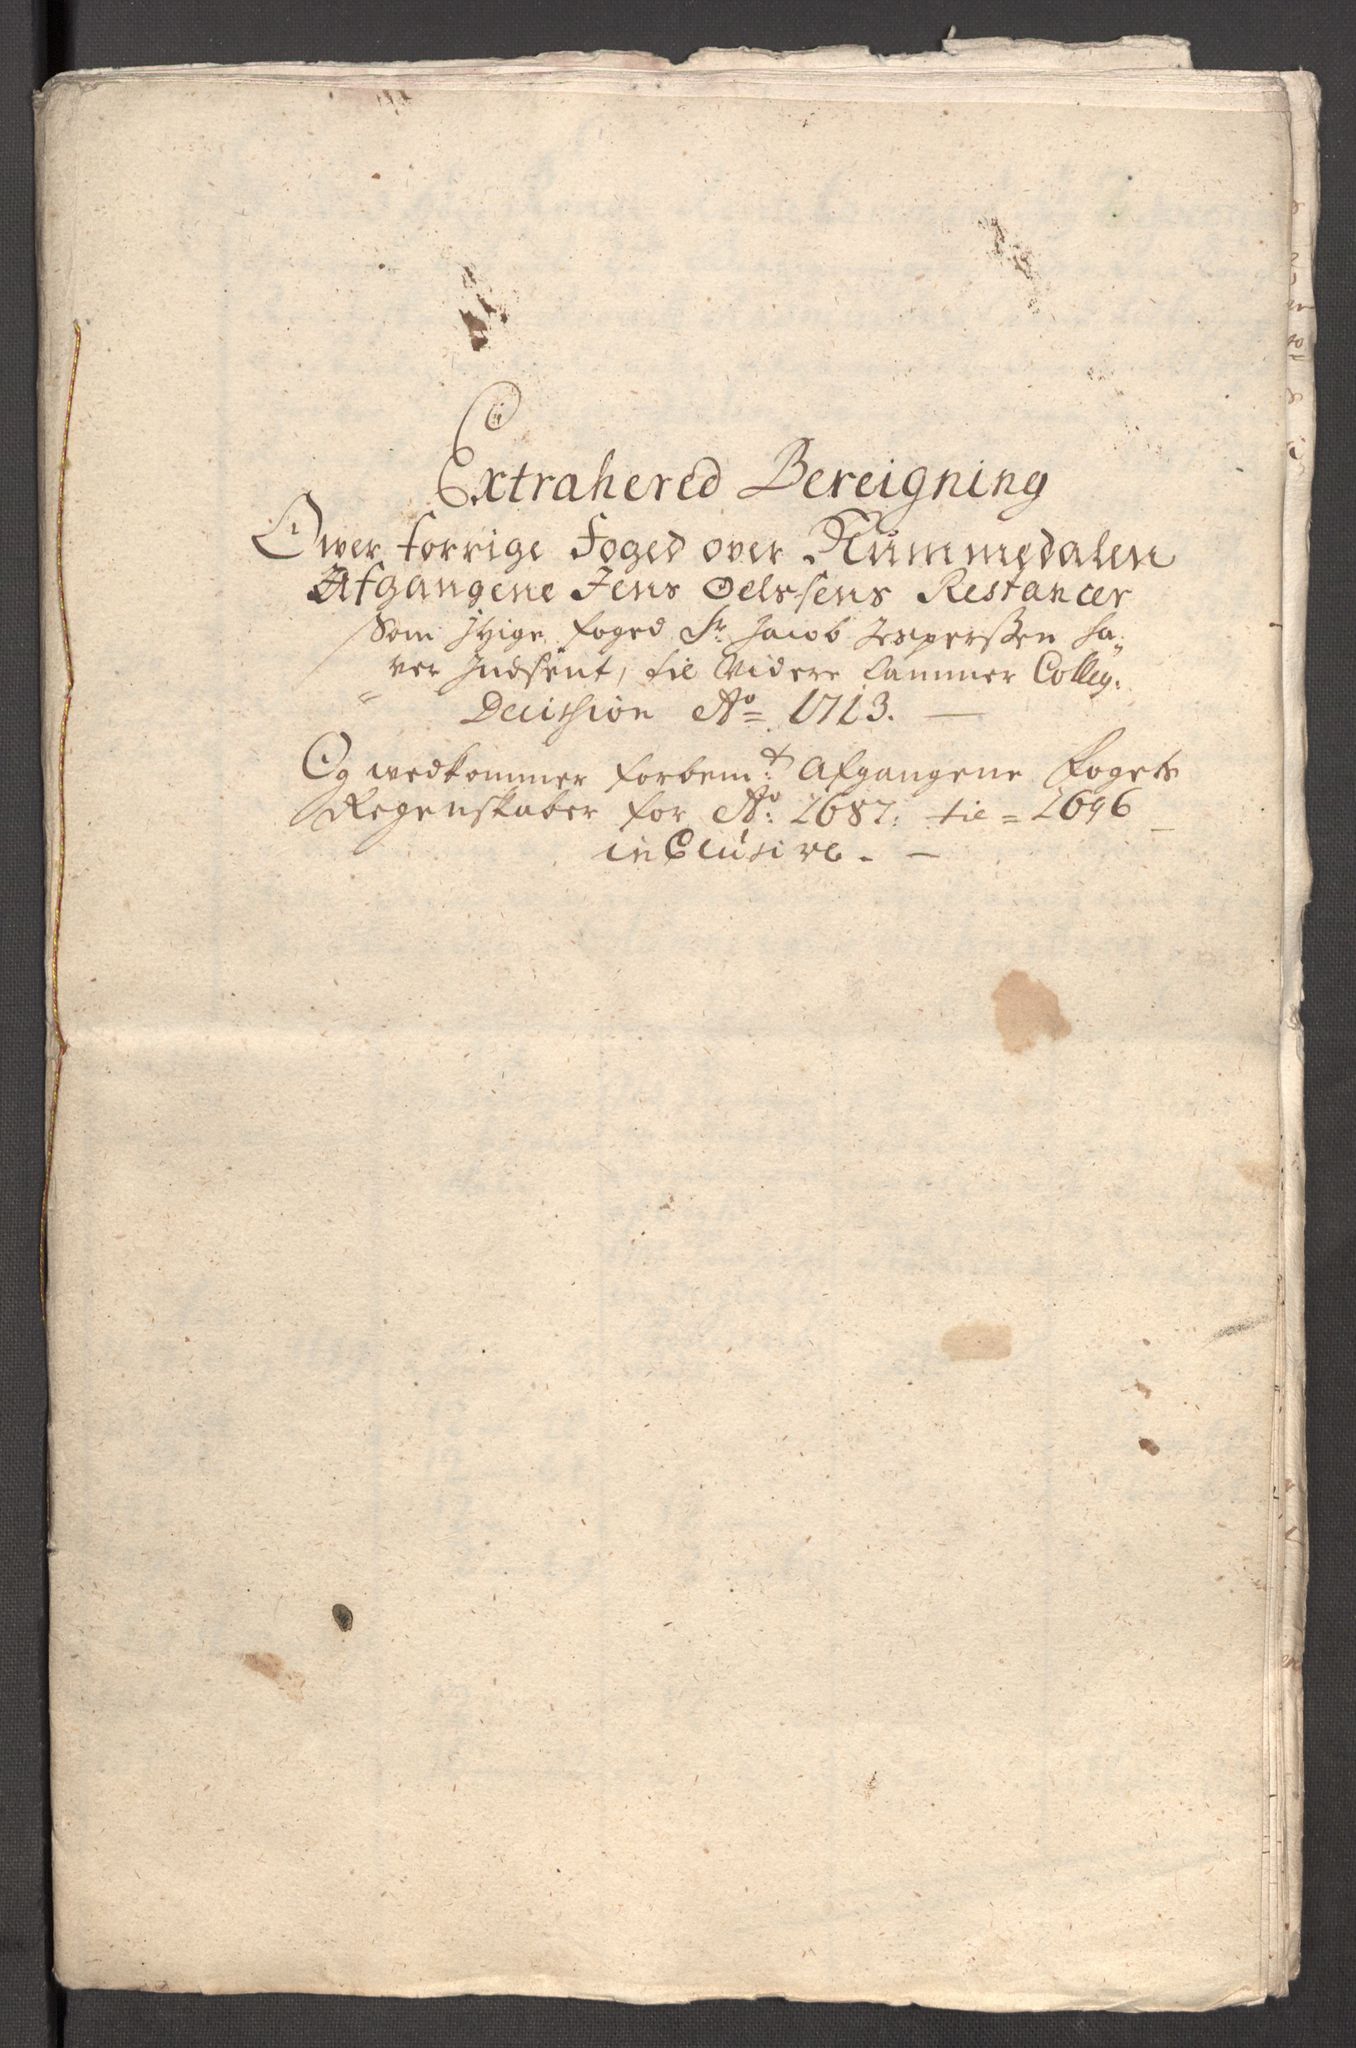 Extrahered Bereigning
Ower forrige Foged over Nummedalen
Afgangene Jens Oelssens Restancer
Som Itzige foged Sr. Jacob Jesperssen ha„
ver Indsent, til Widere Cammer Colleg:
Decission Ao 1713.
Og wedkommer forbemt: Afgangene Fogets
Regenskaber for Ao: 1687: til = 1696
inClusive.